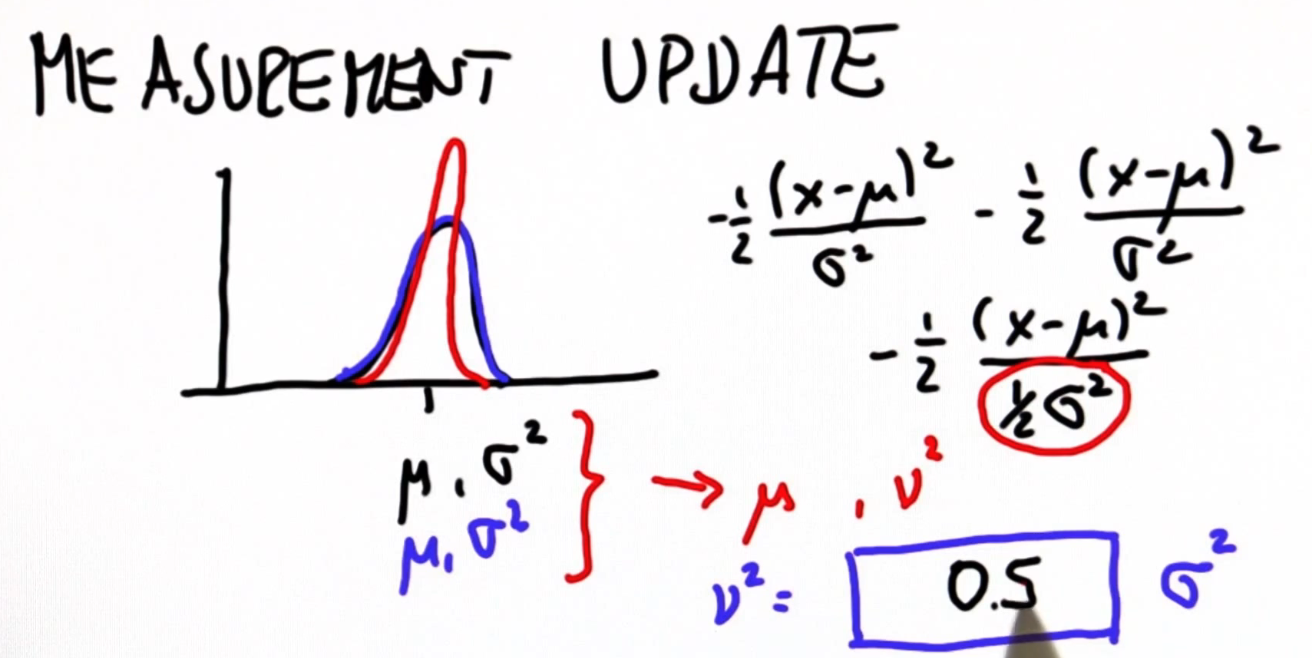 MEASUREMENT UPDATE
-½ (x-μ)² / σ² - ½ (x-μ)² / σ²
-½ (x-μ)² / ½σ²
μ, σ²
μ, σ²
} → μ, ν²
ν² = 0.5 σ²